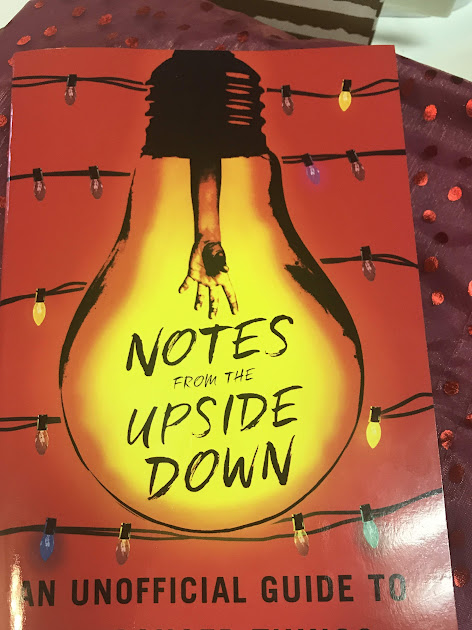 NOTES
FROM THE
UPSIDE
DOWN
AN UNOFFICIAL GUIDE TO